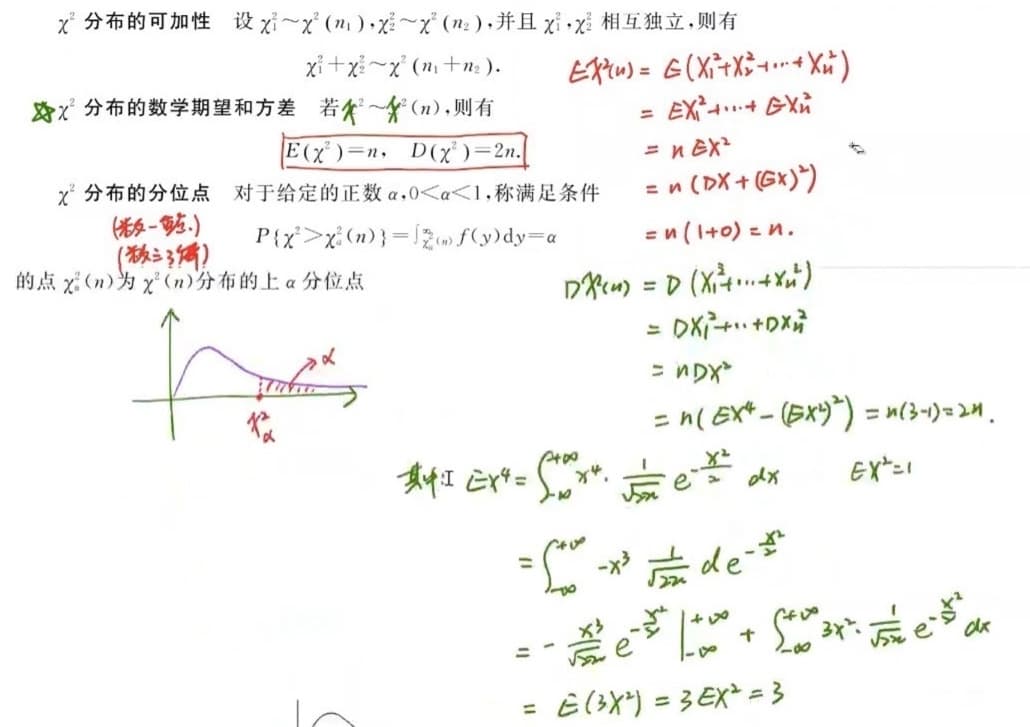 χ² 分布的可加性 设 χ₁²~χ²(n₁),χ₂²~χ²(n₂),并且 χ₁²,χ₂² 相互独立,则有
χ₁²+χ₂²~χ²(n₁+n₂).
☆χ² 分布的数学期望和方差 若χ²~χ²(n),则有
E(χ²)=n, D(χ²)=2n.
χ² 分布的分位点 对于给定的正数 α,0<α<1,称满足条件
P{χ²>χ²_α(n)}=∫_{χ²_α(n)}^∞ f(y)dy=α
(数一
(数三3
的点 χ²_α(n)为 χ²(n)分布的上 α 分位点
α
χ²_α
Eχ²(n) = E(X₁²+X₂²+···+Xn²)
= EX₁²+···+EXn²
= nEX²
= n(DX+(EX)²)
= n(1+0) = n.
Dχ²(n) = D(X₁²+···+Xn²)
= DX₁²+··+DXn²
= nDX²
= n(EX⁴-(EX²)²) = n(3-1)=2n.
其中 EX⁴ = ∫_{-∞}^{+∞} x⁴· 1/√2π e^{-x²/2} dx EX²=1
= ∫_{-∞}^{+∞} -x³ 1/√2π de^{-x²/2}
= - x³/√2π e^{-x²/2} |_{-∞}^{+∞} + ∫_{-∞}^{+∞} 3x²· 1/√2π e^{-x²/2} dx
= E(3X²) = 3EX² = 3